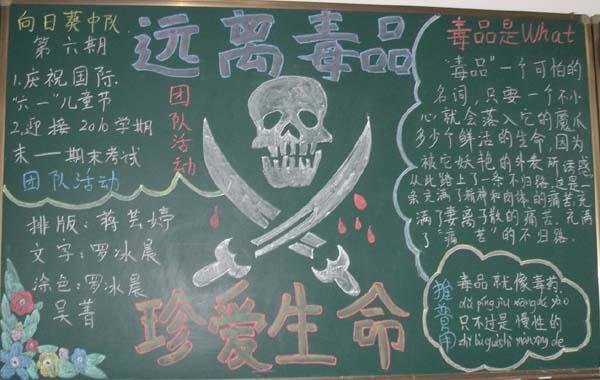 向日葵中队
第六期
1.庆祝国际
"六一"儿童节
2.迎接2010学期
末——期末考试
团队活动
排版:蒋芸婷
文字:罗冰晨
涂色:罗冰晨
吴菁
远离毒品
团队活动
珍爱生命
毒品是What
"毒品"一个可怕的
名词,只要一个不小
心就会落入它的魔爪
多少个鲜活的生命,因为
被它妖艳的外表所诱惑
从此踏上了一条不归路,这是一
条充满了精神和肉体的痛苦充
满了妻离子散的痛苦.充满
了"痛苦"的不归路.
推普周
毒品就像毒药
dú pǐng jiù xàng dú yào
只不过是慢性的
zhǐ bù guì shì màn xìng de